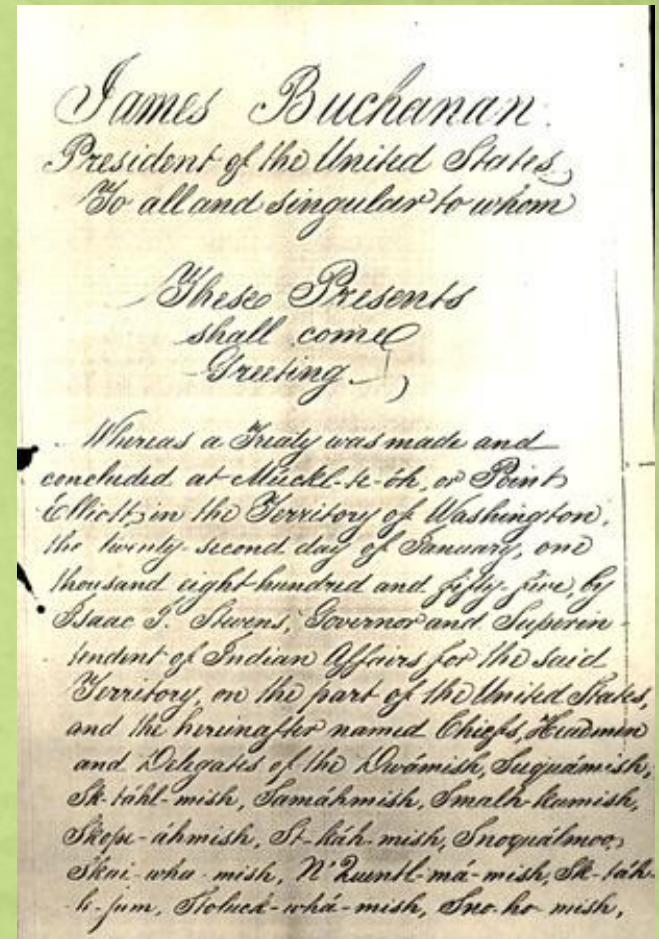 James Buchanan.
President of the United States,
To all and singular to whom
These Presents
shall come
Greeting.
Whereas a Treaty was made and
concluded at Muckl-te-óh, or Point
Elliott, in the Territory of Washington,
the twenty-second day of January, one
thousand eight hundred and fifty-five, by
Isaac I. Stevens, Governor and Superin-
tendent of Indian Affairs for the said
Territory, on the part of the United States,
and the hereinafter named Chiefs, Headmen
and Delegates of the Dwámish, Suquámish,
Sk-táhl-mish, Samáhmish, Smalh-kamish,
Skope-áhmish, St-káh-mish, Snoquálmoo,
Skai-wha-mish, N'Quentl-má-mish, Sk-táh-
le-jum, Stoluck-whá-mish, Sno-ho-mish,